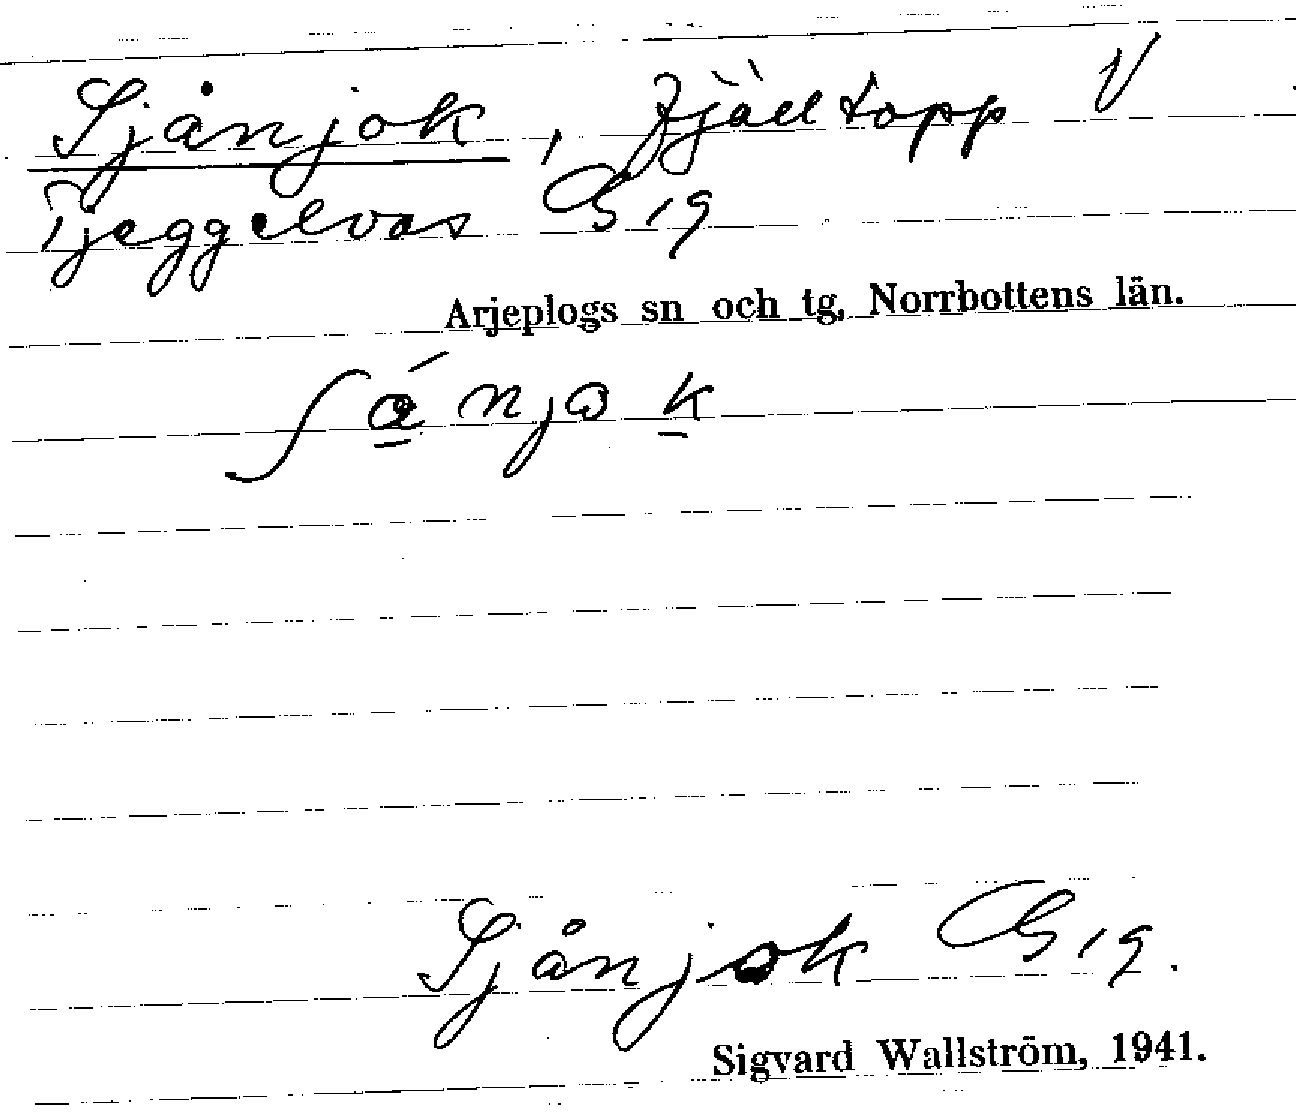 Sjånjok, fjälltopp V
Tjeggelvas G 19
Arjeplogs sn och tg, Norrbottens län.
ʃánjok
Sjånjok G 19.
Sigvard Wallström, 1941.